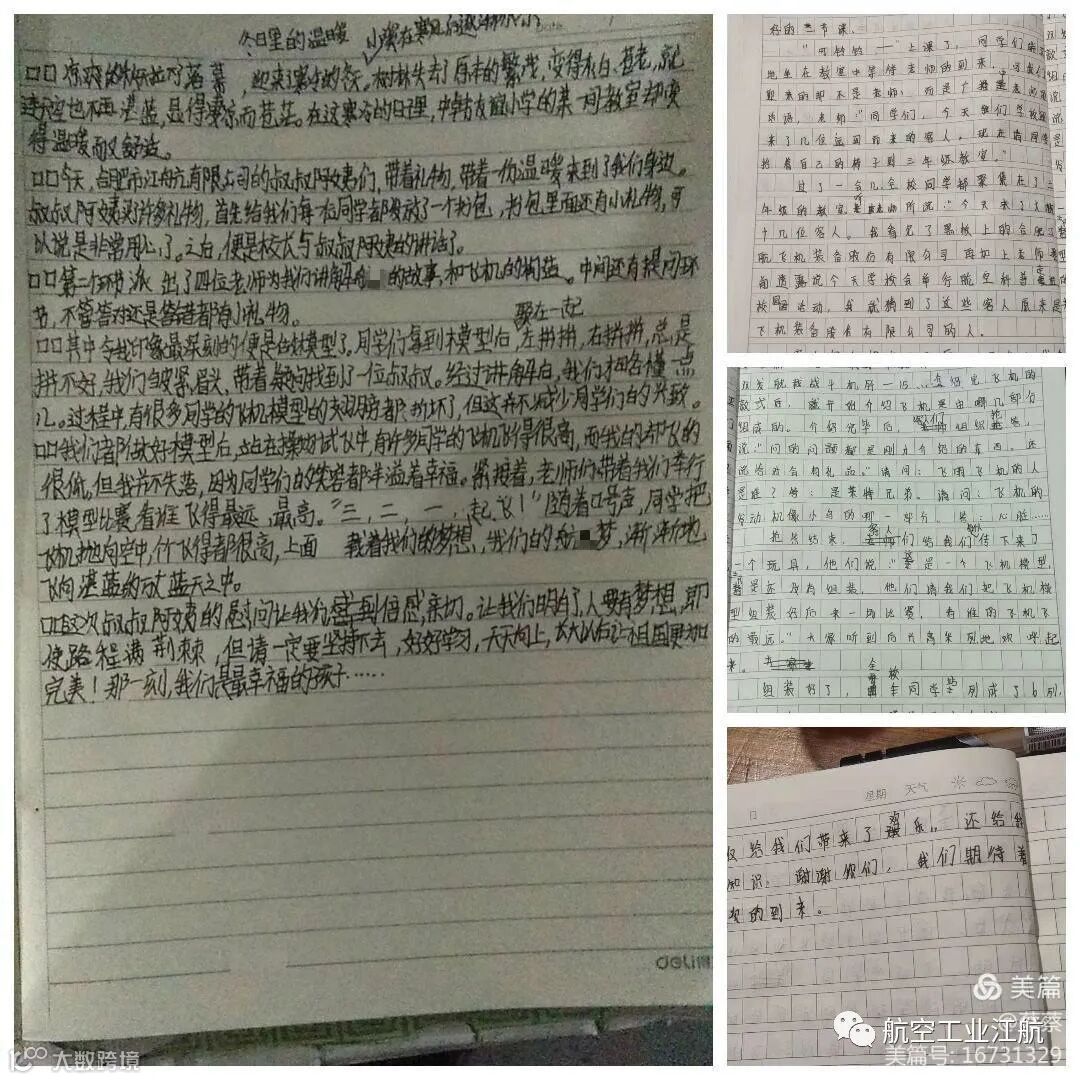 冬日里的温暖
□□凉爽的秋桥拉下落幕，迎来了寒冷的冬天。树林失去了原本的繁茂，变得灰白、苍老，就
连天空也不再湛蓝，显得凄凉而苍茫。在这寒冷的日子里，中韩友谊小学的某一间教室却变
得温暖而又舒适。
□□今天，合肥市江航有限公司的叔叔阿姨们，带着礼物，带着一份温暖来到了我们身边。
叔叔阿姨买了许多礼物，首先给我们每一位同学都发放了一个书包，书包里面还有小礼物，可
以说是非常用心了。之后，便是校长与叔叔阿姨的讲话了。
□□第二个环节，派出了四位老师为我们讲解的故事，和飞机的构造。中间还有提问环
节，不管答对还是答错都有小礼物。
聚在一起
□□其中令我印象最深刻的便是模型了。同学们拿到木模型后，左拼拼，右拼拼，总是
拼不好，我们皱紧眉头，带着疑问找到了一位叔叔。经过讲解后，我们才略懂一点
儿。过程中有很多同学的飞机模型的翅膀都折坏了，但这并不减少同学们的兴致。
□□我们都做好模型后，站在操场试飞中，有许多同学的飞机飞得很高，而我的却飞的
很低。但我并不失落，因为同学们的笑容都洋溢着幸福。紧接着，老师们带着我们举行
了模型比赛，看谁飞得最远、最高。“三，二，一，起飞！”随着口号声，同学把
飞机抛向空中，个个飞得都很高，上面 载着我们的梦想，我们的航梦，渐渐地
飞向湛蓝的蓝天之中。
□□这次叔叔阿姨的慰问让我们感到倍感亲切。让我们明白了，人要有梦想，即
使路程满荆棘，但请一定要坚持下去，好好学习，天天向上，长大以后让祖国更加
完美！那一刻，我们是最幸福的孩子……
deli
好的二节课。
“叮铃铃——”上课了，同学们
地坐在教室中等待老师的到来，可我们
迎来的却不是老师，而是广播
“同学们，今天我们学校
来了几位远道而来的客人。现在请同学
抬着自己的椅子到三年级教室。”
过了一会儿全校同学都聚集在了三
年级的教室，所说“今天来了
十几位客人。我看见了黑板上的合肥
航飞机装备股份有限公司再加上老师
前透露说今天学校会举行航空科普进
校园活动，我就猜到了这些客人原来是
飞机装备股份有限公司的人。
介绍完飞机的
款式后，就开始介绍飞机是由哪几部分
组成的。介绍完毕后，他们组织抢答，
说“问的问题都是刚才介绍的东西，还
说答对会有礼品。”请问：飞机的人
是谁？答：是莱特兄弟。请问：飞机的
发动机像小鸟的哪一部分。答：心脏……
抢答结束，客人们给我们传下来了
一个玩具，他们说“这是一个飞机模型，
是还没有组装，他们请我们把飞机模
型组装好后来一场比赛，看谁的飞机飞
的最远。”大家听到后兴高采烈地欢呼起
来。
组装好了，全校同学站列成了6列，
日
星期 天气
仅给我们带来了欢乐。还给我
知识。谢谢你们，我们期待着
次的到来。
美篇
大数跨境
航空工业江航
美篇号: 16731329